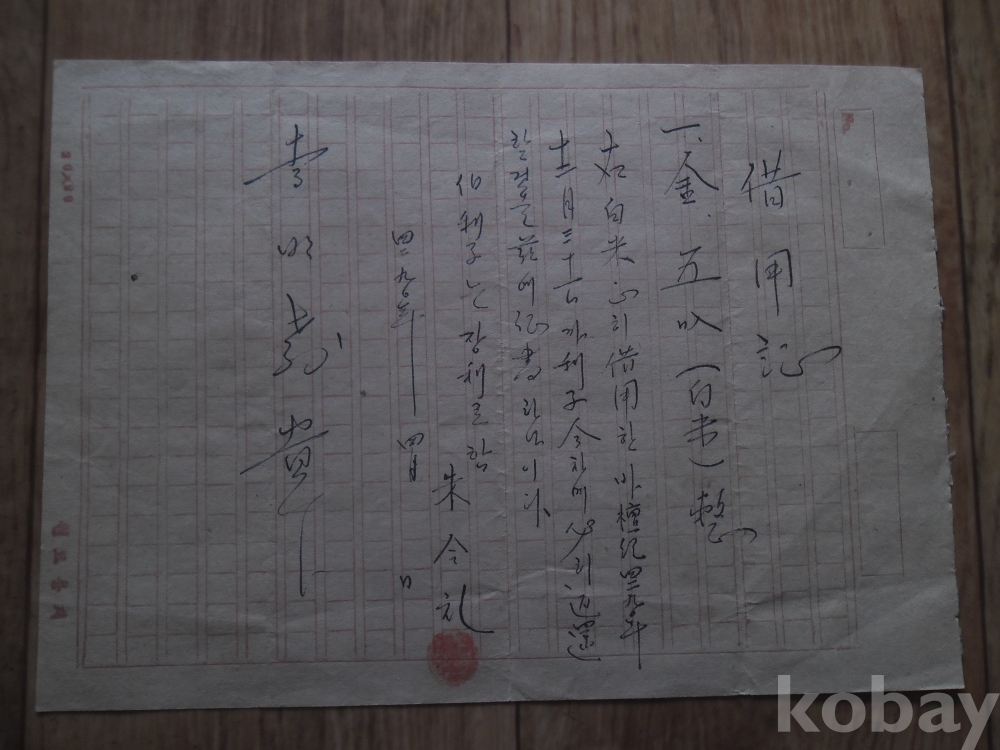 借用記
一、金 五叺(白米)整
右白米 正히 借用한 바 檀紀四二九〇年
十二月三十一日까지 利子 合하여 返還
할 것을 玆에 記書하나이다
但 利子는 장利로 함
四二九〇年 四月 日
朱令礼
李
貴下
20X10
No.
kobay